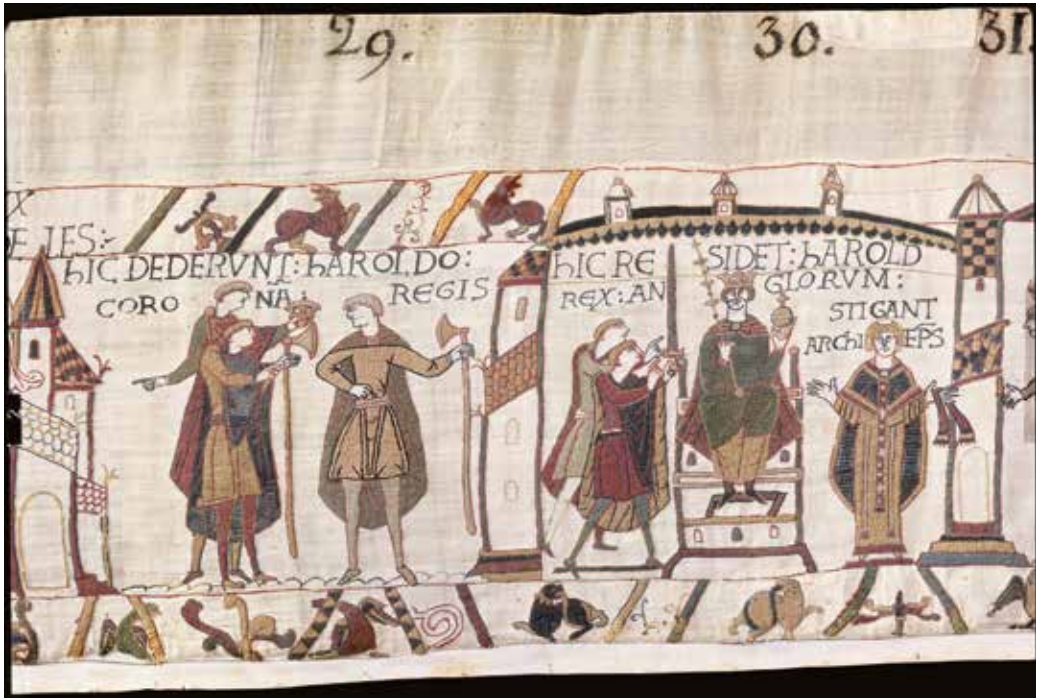 29. 30. 31.
X
E IES:
hIC DEDERVNT: hAROLDO:
CORO NA: REGIS
hIC RE SIDET: hAROLD
REX: AN GLORVM:
STIGANT
ARChI EPS